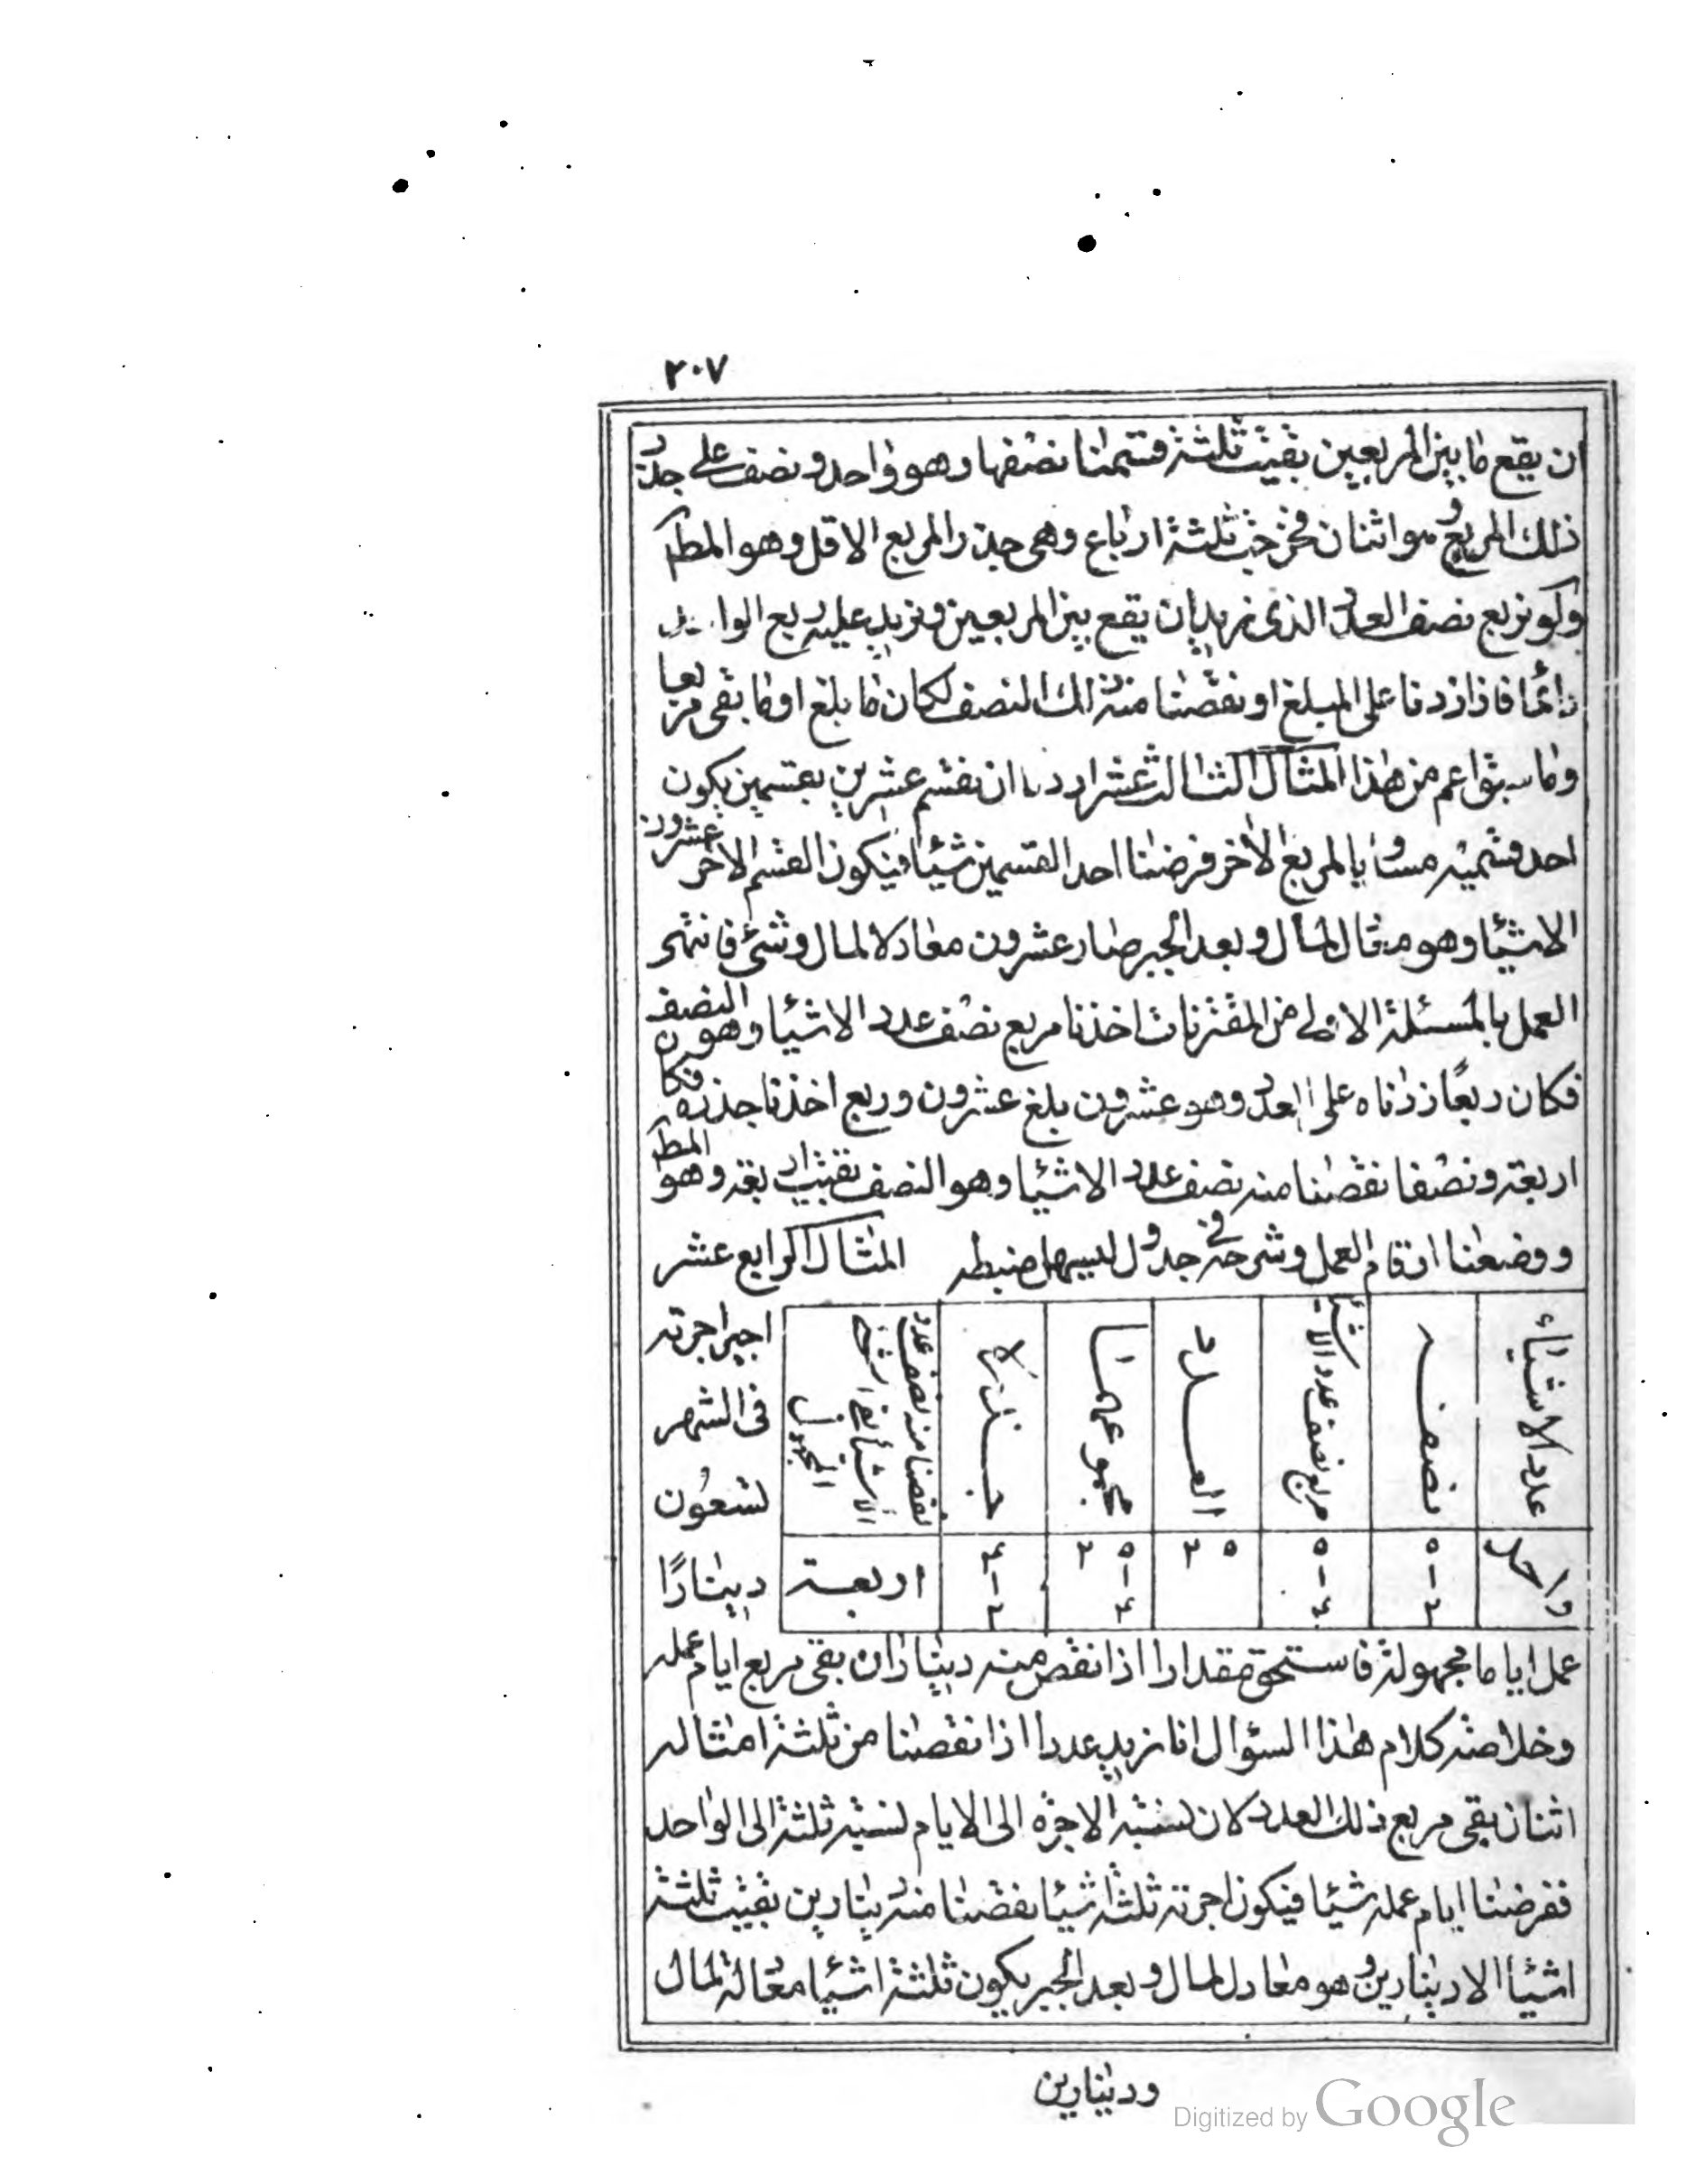 ٢٠٧
ان يقع ما بين المربعين بقيت ثلثة قسمنا نصفها وهو واحد ونصف على جذر
ذلك المربع وهو اثنان فخرجت ثلثة ارباع وهى جذر المربع الاقل وهو المط
ولو نربع نصف العدد الذى نريد ان يقع بين المربعين ونزيد عليه ربع الواحد
دائما فاذا زدنا على المبلغ او نقصنا منه ذلك النصف لكان ما بلغ او ما بقى مربعا
وما سبق اعم من هذا المثال الثالث عشر اردنا ان نقسم عشرين بقسمين يكون
احد قسميه مساويا بالمربع الاخر فرضنا احد القسمين شيئا فيكون القسم الاخر عشرون
الا شيئا وهو معادل لمال وبعد الجبر صار عشرون معادلا لمال وشئ فانتهى
العمل بالمسئلة الاولى من المقترنات اخذنا مربع نصف عدد الاشيا وهو النصف
فكان ربعًا زدناه على العدد وهو عشرون بلغ عشرون وربع اخذنا جذره فكان
اربعة ونصفا نقصنا منه نصف عدد الاشيا وهو النصف بقيت اربعة وهو المط
ووضعنا ارقام العمل وشرحه فى جدول ليسهل ضبطه المثال الرابع عشر
عدد الاشياء
نصفه
مربع نصف عدد الاشيا
العدد
مجموعهما
جذره
نقصنا منه نصف عدد الاشيا
المجهول
واحد
٥ - ٢
٥ - ٤
٢ ٥
٢ ٥ - ٤
٤ - ٢
اربعة
اجير اجرته
فى الشهر
تسعون
دينارًا
عمل اياما مجهولة فاستحق مقدارا اذا نقص منه ديناران بقى مربع ايام عمله
وخلاصة كلام هذا السؤال انا نريد عددا اذا نقصنا من ثلثة امثاله
اثنان بقى مربع ذلك العدد لان نسبة الاجرة الى الايام نسبة ثلثة الى الواحد
ففرضنا ايام عمله شيئا فيكون اجرته ثلثة اشيا نقصنا منه دينارين بقيت ثلثة
اشيا الا دينارين وهو معادل لمال وبعد الجبر يكون ثلثة اشيا معادلة لمال
ودينارين
Digitized by Google